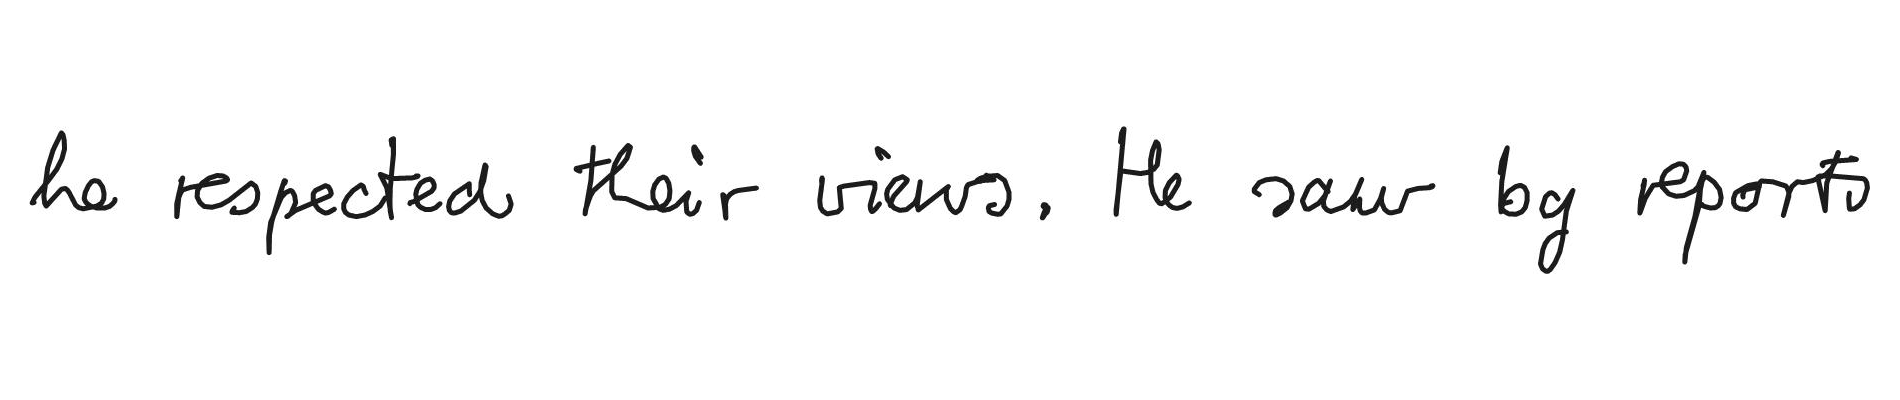 he respected their views. He saw by reports